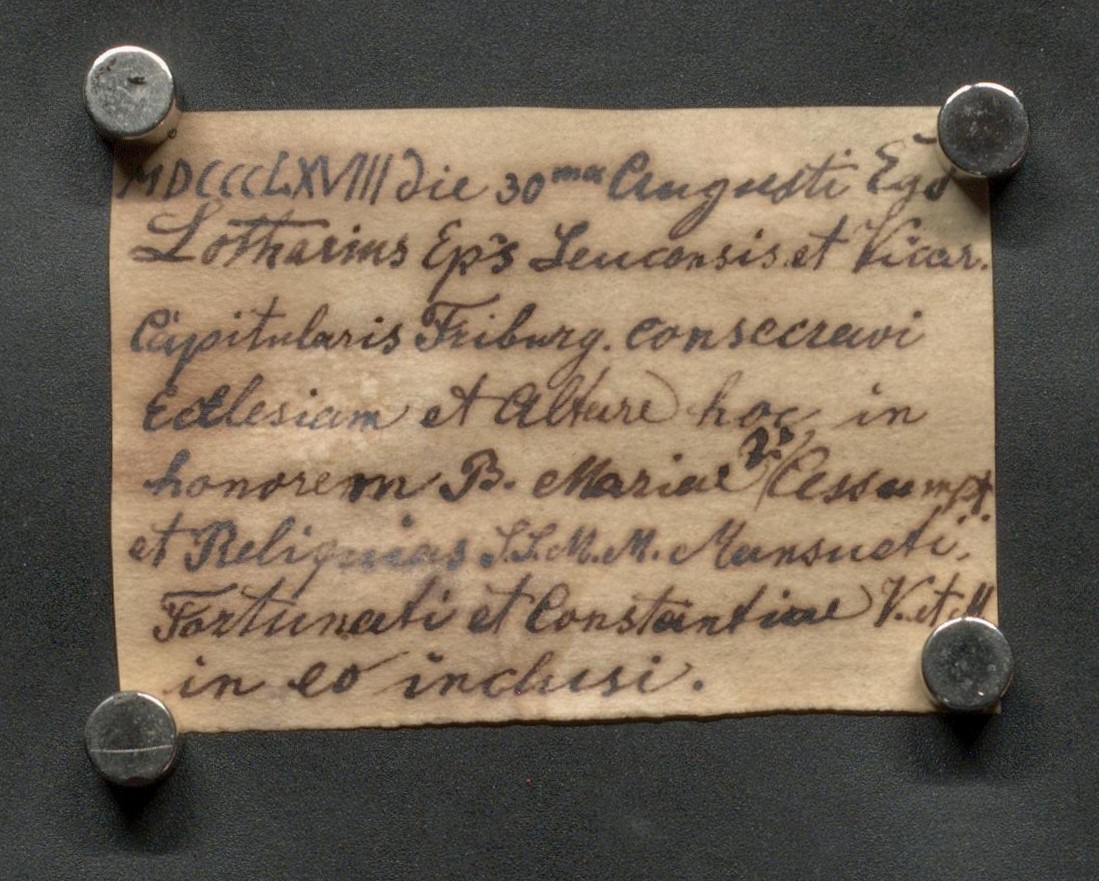 MDCCCLXVIII die 30ma Augusti Ego
Lotharius Ep̃s Leucensis et Vicar.
Capitularis Friburg. consecravi
Ecclesiam et Altare hoc in
honorem B. Mariae V. Assumpt.
et Reliquias S.S.M.M. Mansueti,
Fortunati et Constantiae V. et M
in eo inclusi.